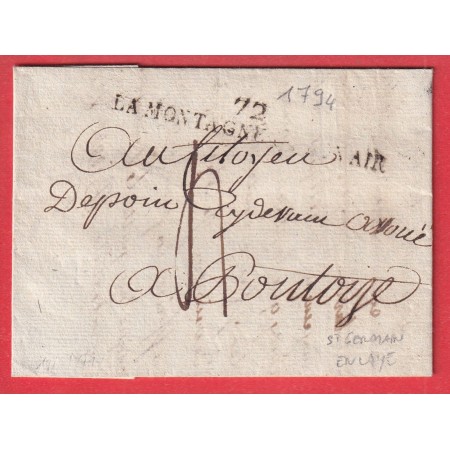 1794
72
LA MONTAGNE AIR
Au Citoyen
Depoin cydevant avoué
a Pontoise
4
ST GERMAIN
EN LAYE